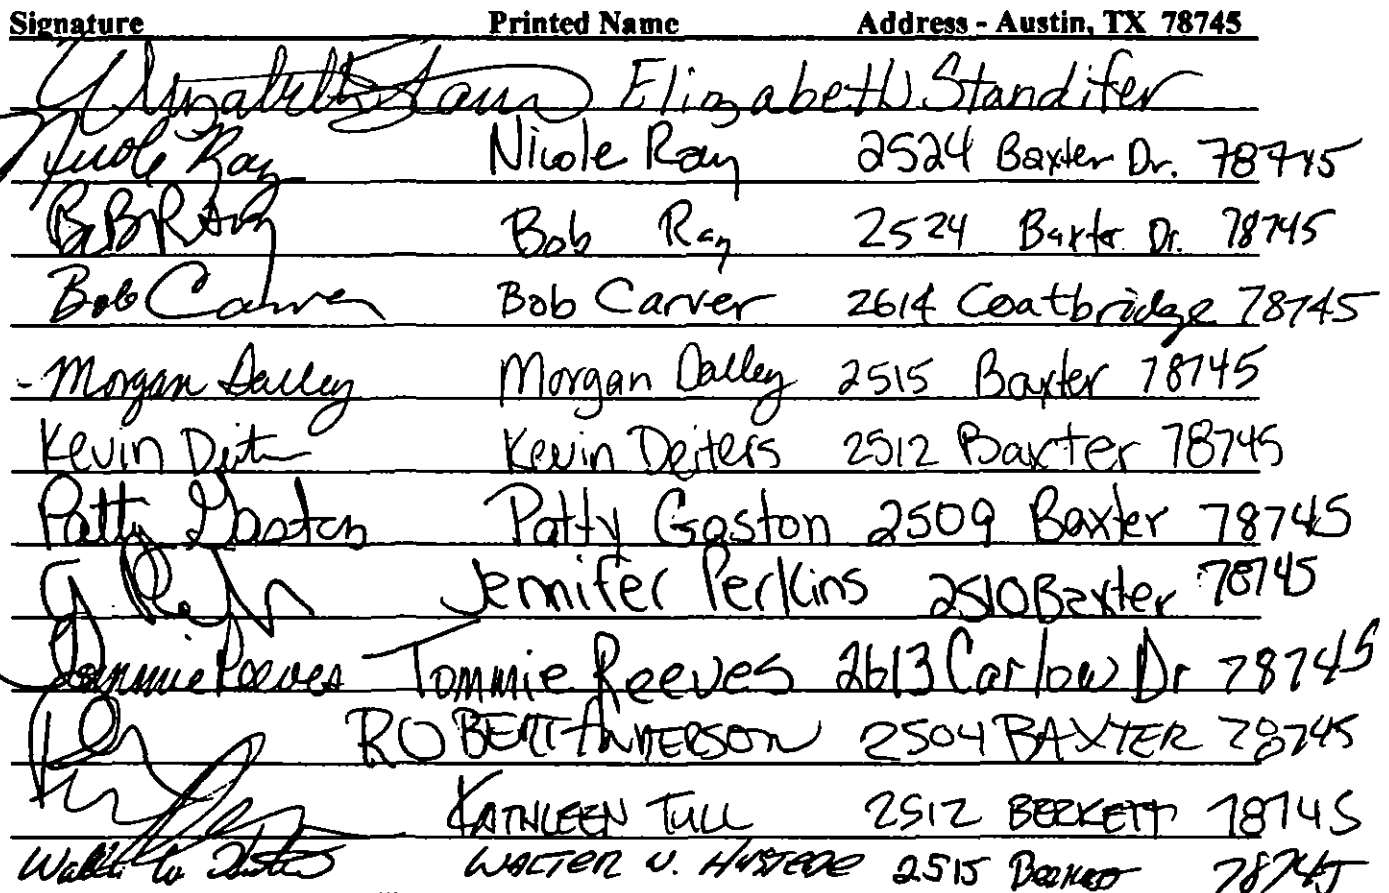 Signature Printed Name Address - Austin, TX 78745
Elizabeth Stan Elizabeth Standifer
Nicole Ray Nicole Ray 2524 Baxter Dr. 78745
Bob Ray Bob Ray 2524 Baxter Dr. 78745
Bob Carver Bob Carver 2614 Coatbridge 78745
Morgan Dalley Morgan Dalley 2515 Baxter 78745
Kevin Deit Kevin Deiters 2512 Baxter 78745
Patty Gaston Patty Gaston 2509 Baxter 78745
Jennifer Perkins 2510 Baxter 78745
Tommie Reeves Tommie Reeves 2613 Carlow Dr 78745
ROBERT ANDERSON 2504 BAXTER 78745
KATHLEEN TULL 2512 BERKETT 78745
WALTER W. HUSTEDE 2515 78745